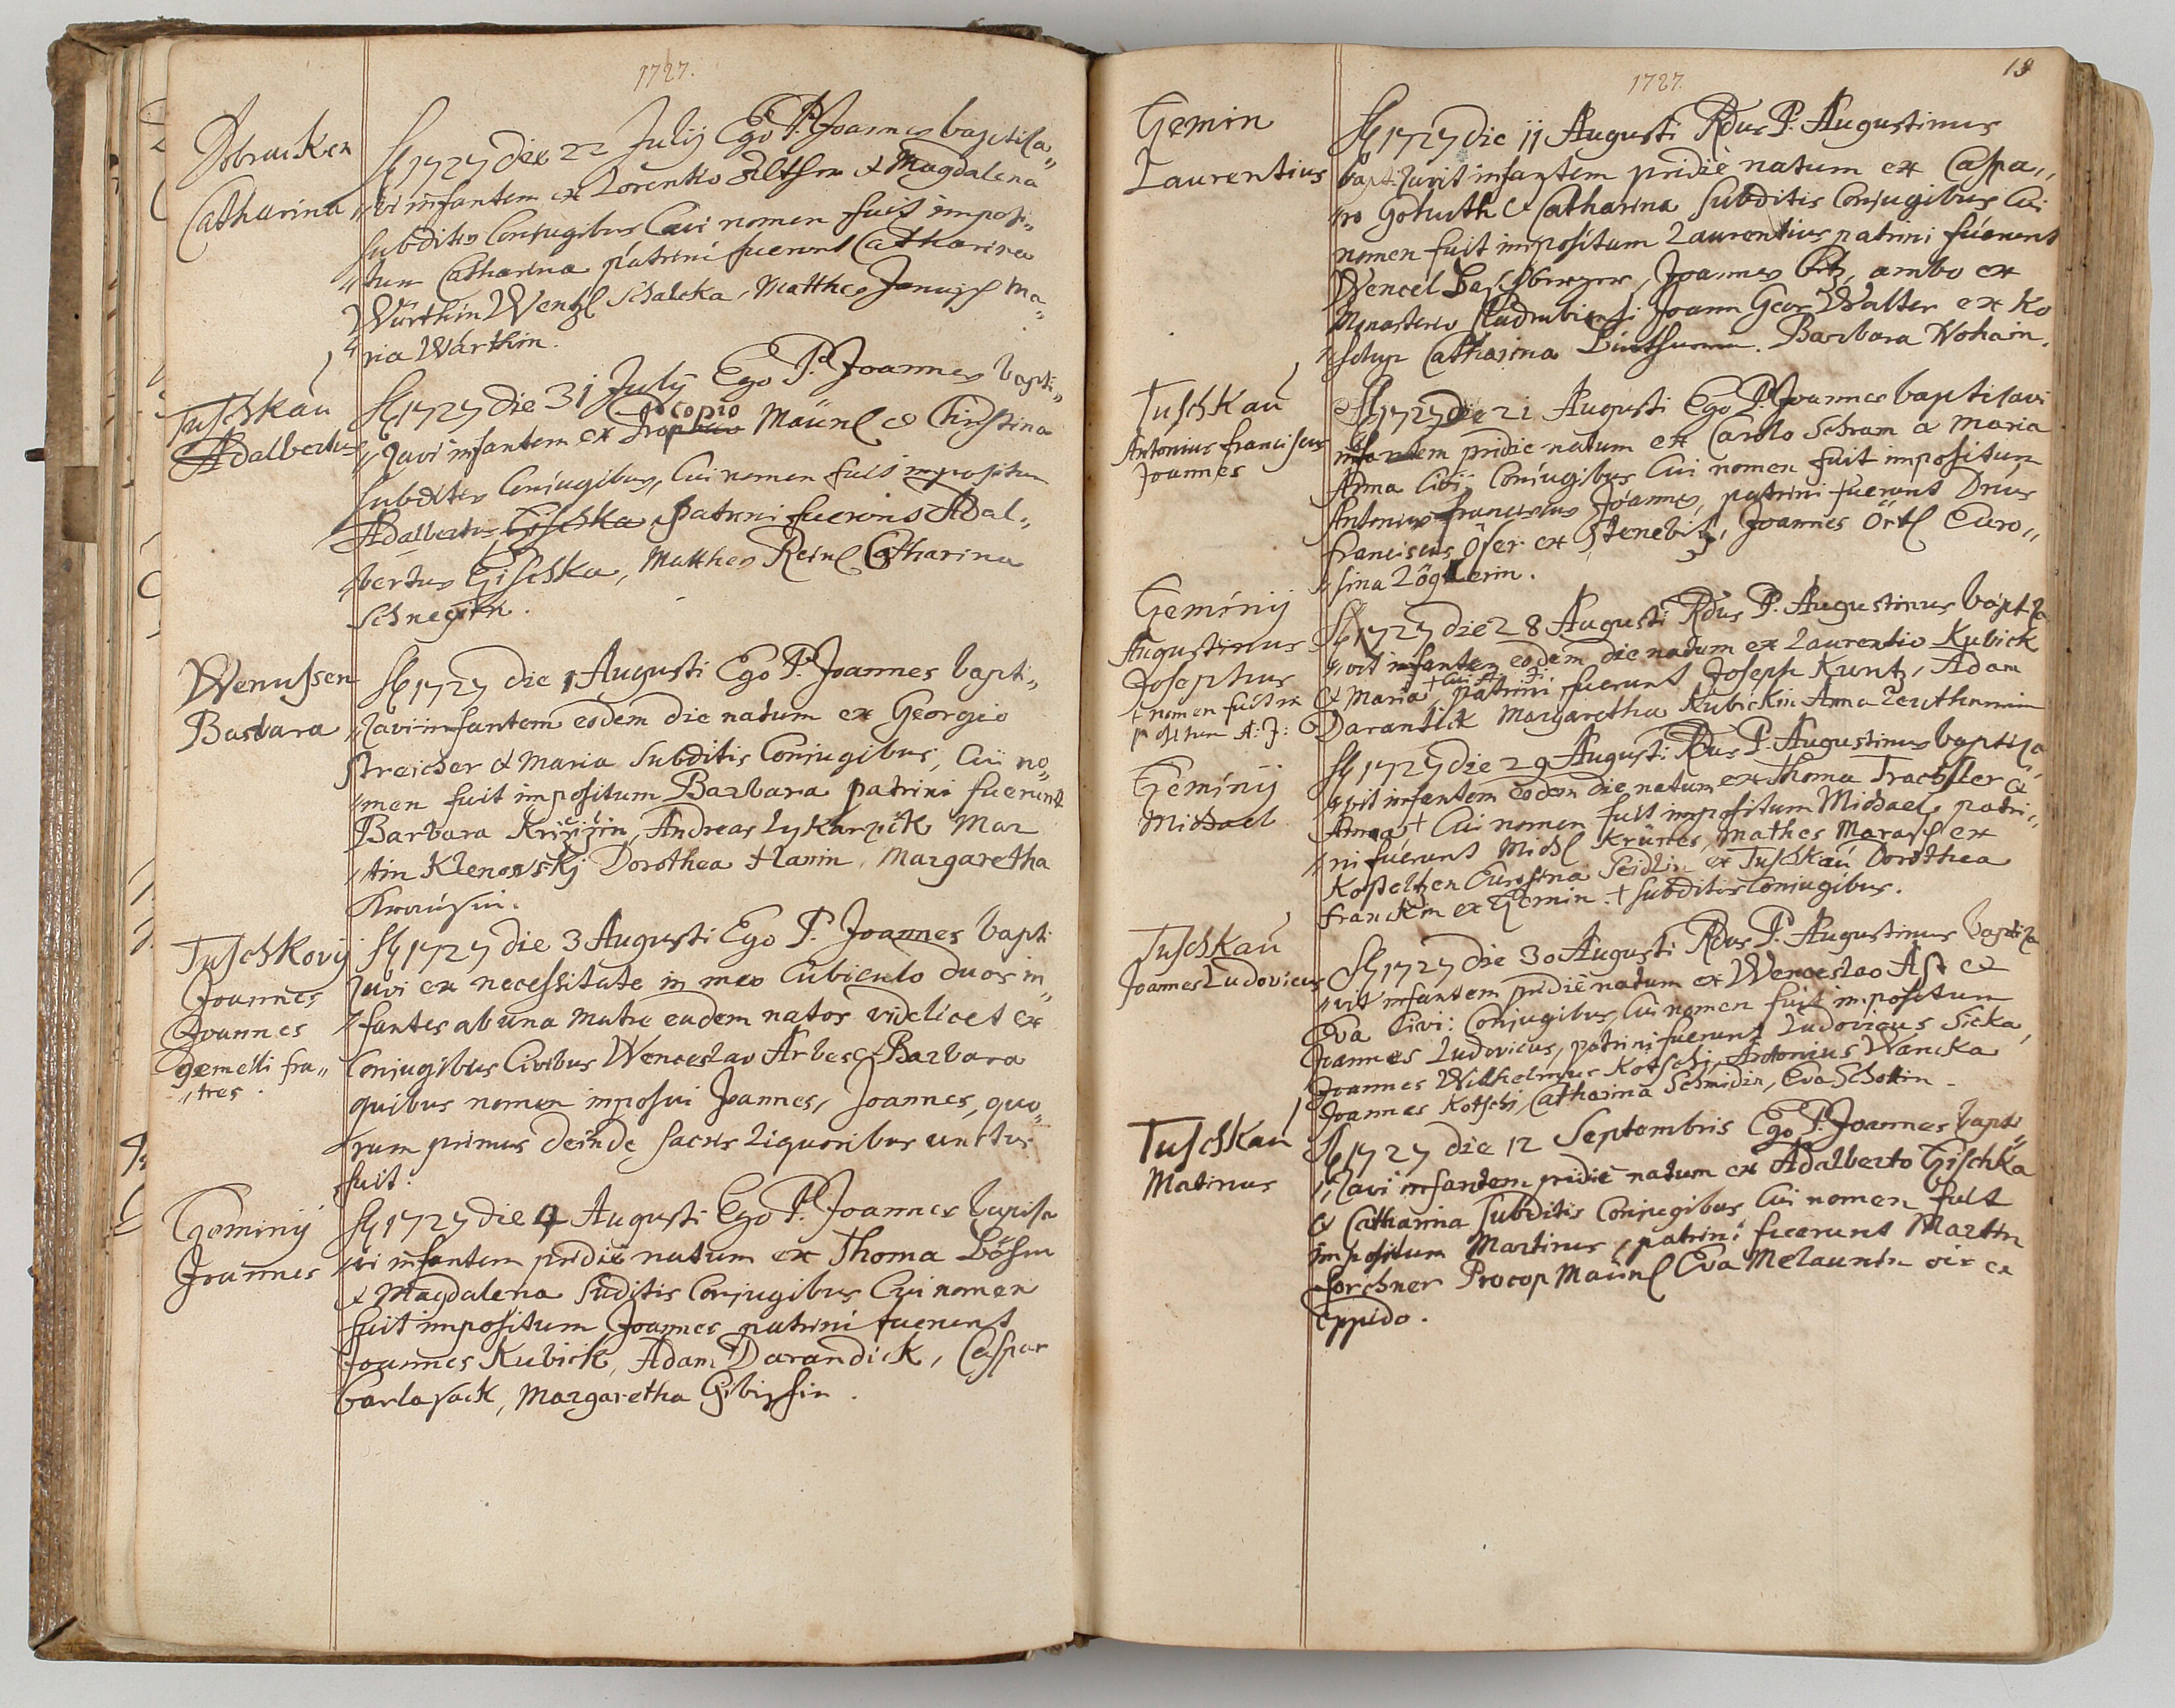 1727.
Dobraken
Catharina
A 1727 die 22 Julij Ego P. Joannes baptisa„
„vi infantem ex Lorentio & Magdalena
subditis Conjugibus Cui nomen fuit imposi„
„tum Catharina patrini fuerunt Catharina
Würthin Wentzl Schalcka, Matthes Janusch Ma„
„ria Würthin.
Tuschkau
Adalbertus
A 1727 die 31 July Ego P. Joannes bapti„
„zavi infantem ex Procopio Maünl & Christina
subditis Conjugibus, Cui nomen fuit impositum
Adalbertus Gischka patrini fuerunt Adal„
„bertus Gischka, Matthes Reinl Catharina
Schnegin.
Wenussen
Barbara
A 1727 die 1 Augusti Ego P. Joannes bapti„
„zavi infantem eodem die natum ex Georgio
Streicher & Maria subditis Conjugibus, Cui no„
„men fuit impositum Barbara patrini fuerunt
Barbara Andreas Lykarpik Mar
„tin Klenowskj Dorothea Hanin, Margaretha
Krausin.
Tuschkovij
Joannes
Joannes
gemelli fra„
„tres.
A 1727 die 3 Augusti Ego P. Joannes bapti
zavi ex necessitate in meo Cubiculo duos in„
„fantes ab una matre eadem natos videlicet ex
Conjugibus Civibus Wenceslao Arbes & Barbara
quibus nomen imposui Joannes, Joannes, quo„
„rum primus deinde sacris liquoribus unctus
fuit.
Geminij
Joannes
A 1727 die 4 Augusti Ego P. Joannes bapisa
„vi infantem pridie natum ex Thoma Böhm
& Magdalena Suditis Conjugibus Cui nomen
fuit impositum Joannes patrini fuerunt
Joannes Kubick, Adam Darandick, Caspar
Barlasack, Margaretha Gibischin.
1727.
19
Gemin
Laurentius
A 1727 die 11 Augusti Rdus P. Augustinus
baptizavit infantem pridie natum ex Caspa„
„ro Gottwth & Catharina subditis Conjugibus Cui
nomen fuit impositum Laurentius patrini fuerunt
Wencel Joannes ambo ex
Monasterio Kladrubiensi Joann Geor Walter ex Ko
„scluz Catharina Barbara Wohain.
Tuschkau
Antonius franciscus
Joannes
A 1727 die 21 Augusti Ego P. Joannes baptisavi
infantem pridie natum ex Carolo Schram & Maria
Anna Civi: Conjugibus Cui nomen fuit impositum
Antonius franciscus Joannes, patrini fuerunt Dnus
franciscus Öser ex Joannes Örtl Euro„
„sina Löglerin.
Geminij
Augustinus
Josephus
+ nomen fuit im
positum A: J:
A 1727 die 28 Augusti Rdus P. Augustinus baptiza
„vit infantem eodem die natum ex Laurentio Kubick
& Maria + Cui patrini fuerunt Joseph Kuntz, Adam
Darantick Margaretha Kubickin Anna Leuthnerin
Geminij
Michael
A 1727 die 29 Augusti Rdus P. Augustinus baptiza„
„vit infantem eodem die natum ex Thoma Trachsler &
Anna + Cui nomen fuit impositum Michael, patri„
„ni fuerunt Michl Krünes, Mathes Marasch ex
Koscheltzen Eurosina Seidlin ex Tuschkau Dorothea
franckin ex Gemin. + subditis Conjugibus.
Tuschkau
Joannes Ludovicus
A 1727 die 30 Augusti Rdus P. Augustinus baptiza
„vit infantem pridie natum ex Wenceslao Ast &
Eva Civi: Conjugibus, Cui nomen fuit impositum
Joannes Ludovicus, patrini fuerunt Ludovicus Sicka,
Joannes Wilhelmus Kotschi, Antonius Wancka
Joannes Kotschi, Catharina Schmidin, Eva Schottin.
Tuschkau
Matinus
A 1727 die 12 Septembris Ego P. Joannes bapti„
„zavi infantem pridie natum ex Adalberto Gischka
& Catharina subditis Conjugibus Cui nomen fuit
impositum Martinus, patrini fuerunt Martin
forchner Procop Maünl Eva Melaunin oix ex
oppido.